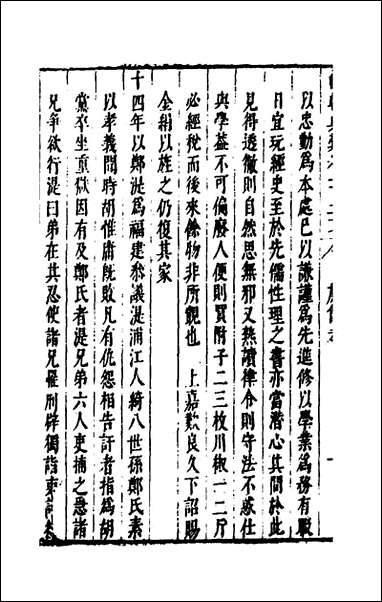 以忠勤為本處己以謙謹為先進修以學業為務有暇
日宜玩經史至於先儒性理之書亦當潜心其間於此
見得透徹則自然思無邪又熟讀律令則守法不惑仕
與學蓋不可偏廢人便則買附子二三枚川椒一二斤
必經稅而後來餘物非所覬也　上嘉歎良久下詔賜
金絹以旌之仍復其家
十四年以鄭湜為福建叅議湜浦江人綺八世孫鄭氏素
以孝義聞時胡惟庸旣敗凡有仇怨相告訐者指為胡
黨卒坐重獄因有及鄭氏者湜兄弟六人吏捕之悉諸
兄爭欲行湜曰弟在其忍使諸兄罹刑辟獨詣